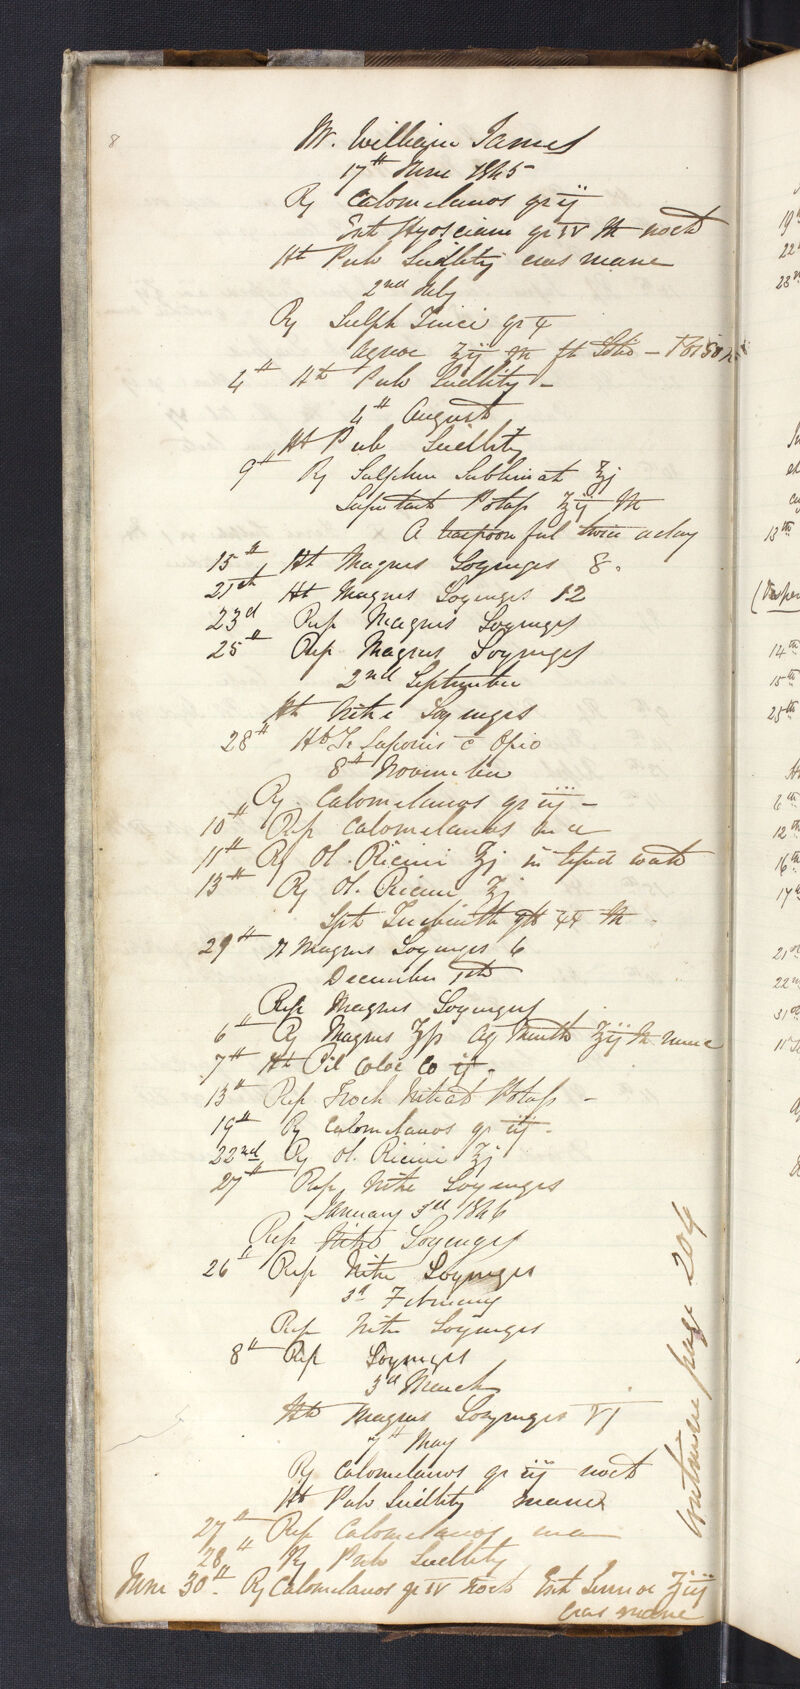 8
Mr. William James
17th June 1845
Rx Calomelanos gr ij
Ext Hyosciami gr iv M nocte
Ht Pulv Seidlitz cras mane
2nd July
Rx Sulph Zinci gr
aquae ℥ij M ft Lotio
4th Ht Pulv Seidlitz -
4th August
Ht Pulv Seidlitz
9th Rx Sulphur Sublimat ℥j
Supertart Potass ℥ij M
A teaspoonful twice a day
15th Ht Magnes Lozenges 8.
21st Ht Magnes Lozenges 12
23d Rep Magnes Lozenges
25th Rep Magnes Lozenges
2nd September
Ht Nitre Lozenges
28th Ht Saponis c Opio
8th November
Rx Calomelanos gr iij -
10th Rep Calomelanos
11th Rx Ol. Ricini ℥j in water
13th Rx Ol. Ricini ℥j
Spt Terebinth M
29th Ht Magnes Lozenges 6
December 1st
Rep Magnes Lozenges
6th Rx Magnes ʒſs Aq Menth ℥ij M mane
7th Ht Pil Coloc Co ij.
13th Rep Troch Nitrat Potass -
19th Rx Calomelanos gr iij -
22nd Rx Ol. Ricini ℥j
27th Rep Nitre Lozenges
January 3rd 1846
Rep Nitre Lozenges
26th Rep Nitre Lozenges
3d February
Rep Nitre Lozenges
8th Rep Lozenges
3rd March
Ht Magnes Lozenges vj
7th May
Rx Calomelanos gr iij nocte
Ht Pulv Seidlitz mane
27th Rep Calomelanos
28th Rx Pulv Seidlitz
June 30th. Rx Calomelanos gr iv nocte Ext Sennae ʒiij
cras mane
continue page 204
19th
22
23
13th
14th
15th
25th
6th
12th
16th
17th
21st
22nd
31st